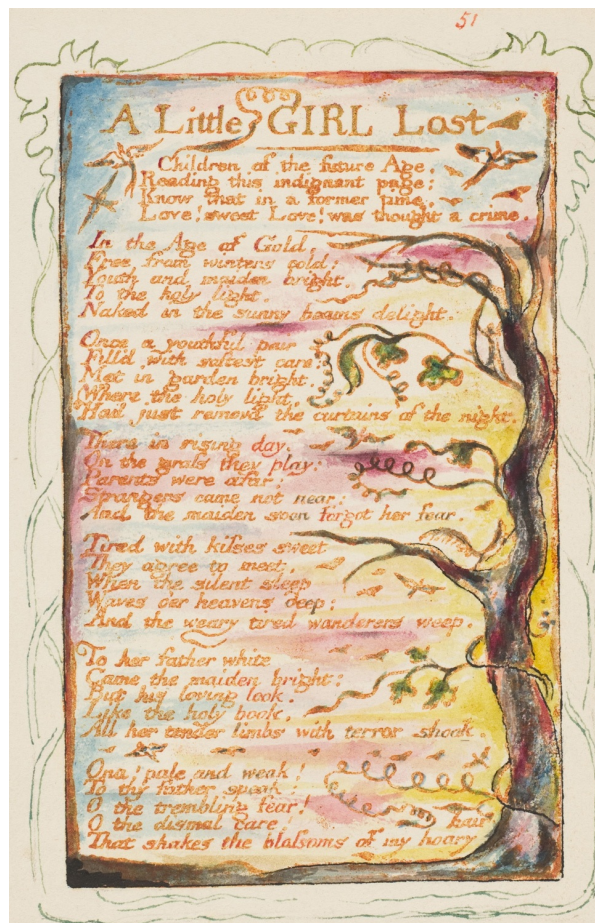 51
A Little GIRL Lost
Children of the future Age,
Reading this indignant page:
Know that in a former time,
Love! sweet Love! was thought a crime.
In the Age of Gold,
Free from winters cold:
Youth and maiden bright,
To the holy light,
Naked in the sunny beams delight.
Once a youthful pair
Fill'd with softest care:
Met in garden bright,
Where the holy light,
Had just removd the curtains of the night.
There in rising day,
On the grass they play:
Parents were afar:
Strangers came not near:
And the maiden soon forgot her fear.
Tired with kisses sweet
They agree to meet,
When the silent sleep
Waves o'er heavens deep;
And the weary tired wanderers weep.
To her father white
Came the maiden bright:
But his loving look,
Like the holy book,
All her tender limbs with terror shook.
Ona! pale and weak!
To thy father speak:
O the trembling fear!
O the dismal care!
That shakes the blossoms of my hoary hair